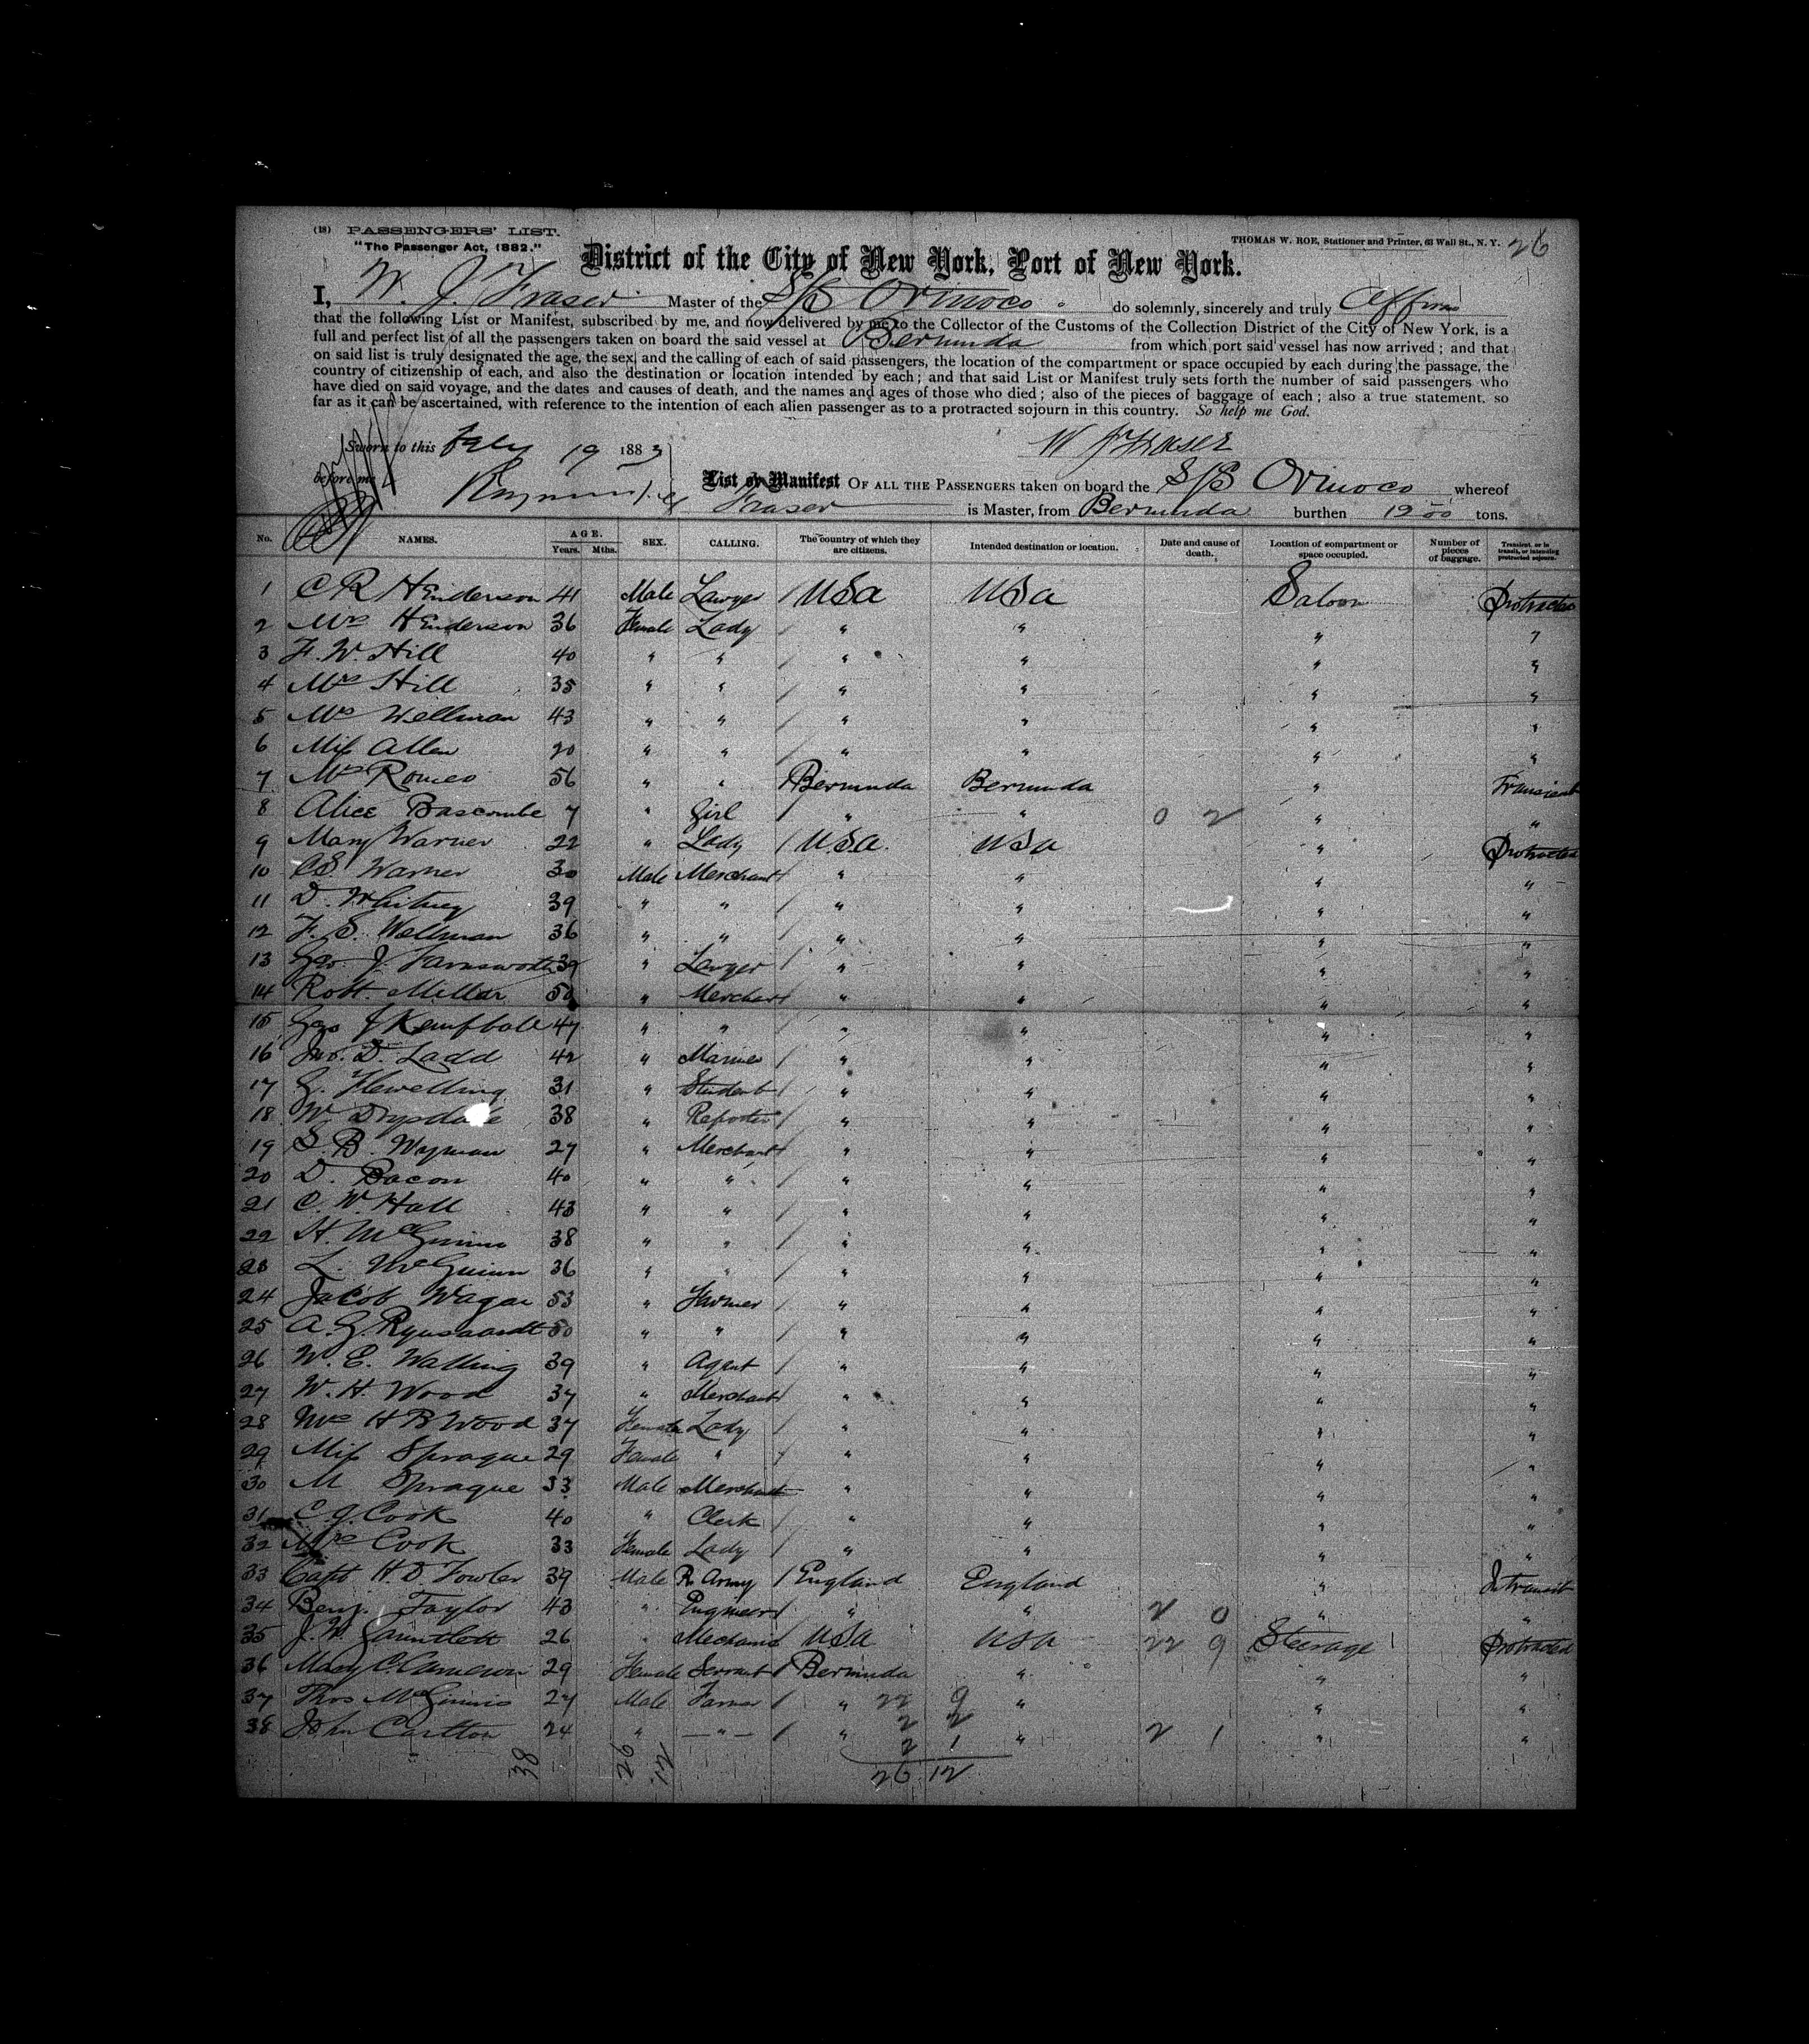 (18) PASSENGERS' LIST.
"The Passenger Act, 1882."
THOMAS W. ROE, Stationer and Printer, 63 Wall St., N. Y. 26
District of the City of New York, Port of New York.
I, W. J. Fraser Master of the S/S Orinoco do solemnly, sincerely and truly affirm
that the following List or Manifest, subscribed by me, and now delivered by me to the Collector of the Customs of the Collection District of the City of New York, is a
full and perfect list of all the passengers taken on board the said vessel at Bermuda from which port said vessel has now arrived; and that
on said list is truly designated the age, the sex, and the calling of each of said passengers, the location of the compartment or space occupied by each during the passage, the
country of citizenship of each, and also the destination or location intended by each; and that said List or Manifest truly sets forth the number of said passengers who
have died on said voyage, and the dates and causes of death, and the names and ages of those who died; also of the pieces of baggage of each; also a true statement, so
far as it can be ascertained, with reference to the intention of each alien passenger as to a protracted sojourn in this country. So help me God.
Sworn to this 19 1883 W J Fraser
before me
List or Manifest OF ALL THE PASSENGERS taken on board the S/S Orinoco whereof
Fraser is Master, from Bermuda burthen 1200 tons.
No. NAMES. AGE. Years. Mths. SEX. CALLING. The country of which they are citizens. Intended destination or location. Date and cause of death. Location of compartment or space occupied. Number of pieces of baggage. Transient, or in transit, or intending protracted sojourn.
1 C R Henderson 41 Male Lawyer / USa USa Saloon Protracted
2 Mrs Henderson 36 Female Lady / " " " "
3 F. W. Hill 40 " " / " " " "
4 Mrs Hill 35 " " / " " " "
5 Mrs Wellman 43 " " / " " " "
6 Miss Allen 20 " " / " " " "
7 Mrs Romeo 56 " " / Bermuda Bermuda " Transient
8 Alice Bascombe 7 " Girl / " " 0 2 " "
9 Mary Warner 22 " Lady / USa USa " Protracted
10 Warner 30 Male Merchant / " " " "
11 D. Whitney 39 " " / " " " "
12 F. S. Wellman 36 " " / " " " "
13 Geo. J. Farnsworth 39 " Lawyer / " " " "
14 Robt. Miller 50 " Merchant / " " " "
15 Geo 47 " " / " " " "
16 Jno. D. Ladd 42 " / " " " "
17 G. Flewelling 31 " Student / " " " "
18 W Drysdale 38 " Reporter / " " " "
19 S. B. Wyman 27 " Merchant / " " " "
20 D. Bacon 40 " " / " " " "
21 C. W. Hall 43 " " / " " " "
22 H. 38 " " / " " " "
23 L. McGuinn 36 " " / " " " "
24 Jacob Wagar 53 " Farmer / " " " "
25 A. G. 50 " " / " " " "
26 W. E. Walling 39 " Agent / " " " "
27 W. H. Wood 37 " Merchant / " " " "
28 Mrs H B Wood 37 Female Lady / " " " "
29 Miss Sprague 29 Female " / " " " "
30 M Sprague 33 Male Merchant " " " "
31 C. G. Cook 40 " Clerk / " " " "
32 Mrs Cook 33 Female Lady / " " " "
33 Capt H. D. Fowler 39 Male R. Army / England England " In transit
34 Benj. Taylor 43 " Engineer / " " 2 0 " "
35 J. W. Gauntlett 26 " Mechanic USa USa 22 9 Steerage Protracted
36 Mary C. Cameron 29 Female Servant / Bermuda " " "
37 Thos McGinnis 27 Male Farmer / " 22 9 " " "
2 2
38 John Carlton 24 " — " — / " 2 1 " 2 1 " "
38 26 12 26 12